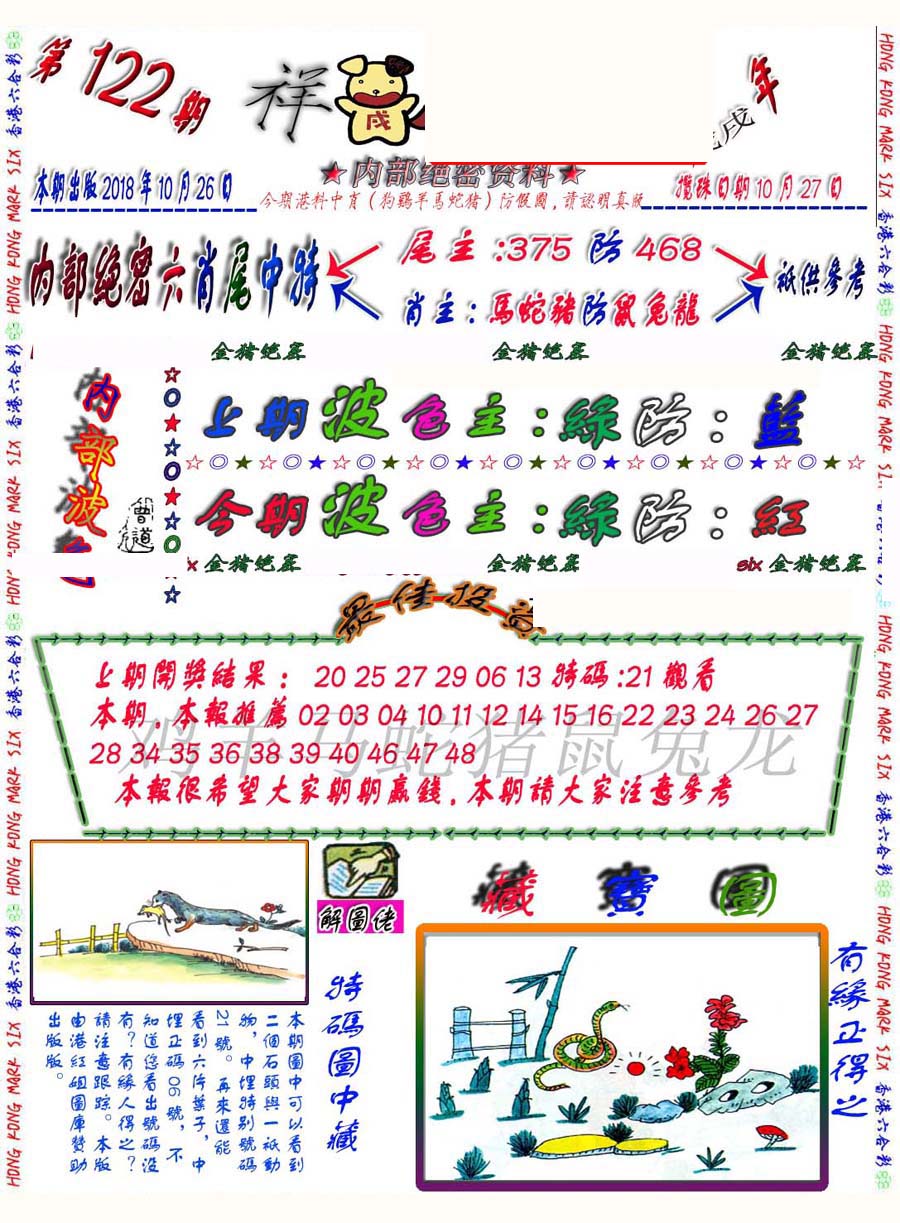 第122期
祥
戌
戌年
★内部绝密资料★
本期出版2018年10月26日
今期港料中肖(狗鷄羊馬蛇猪)防假圖,請認明真版
攪珠日期10月27日
内部绝密六肖尾中特
尾主:375 防 468
肖主:馬蛇豬防鼠兔龍
衹供參考
金猪绝密
金猪绝密
金猪绝密
内部波
曾道
上期波色主:綠防:藍
☆◎★☆◎★☆◎★☆◎★☆◎★☆◎★☆◎★☆◎★☆◎☆
今期波色主:綠防:紅
x 金猪绝密
金猪绝密
six 金猪绝密
最佳投
上期開獎結果: 20 25 27 29 06 13 特碼:21 觀看
本期.本報推薦 02 03 04 10 11 12 14 15 16 22 23 24 26 27
28 34 35 36 38 39 40 46 47 48
鸡羊马蛇猪鼠兔龙
本報很希望大家期期贏錢.本期請大家注意參考
解圖佬
藏寶圖
特碼圖中藏
有緣正得之
本期圖中可以看到
二個石頭與一衹動
物,中埋特别號碼
21號。再來還能
看到六片葉子,中
埋正碼06號,不
知道您看出號碼沒
有?有緣人得之?
請注意跟踪。本版
由港紅姐圖庫贊助
出版版。
HONG KONG MARK SIX 香港六合彩
HONG KONG MARK SIX 香港六合彩
HONG KONG MARK SIX 香港六合彩
HONG KONG MARK SIX 香港六合彩
HONG KONG MARK SIX 香港六合彩
HONG KONG MARK SIX 香港六合彩